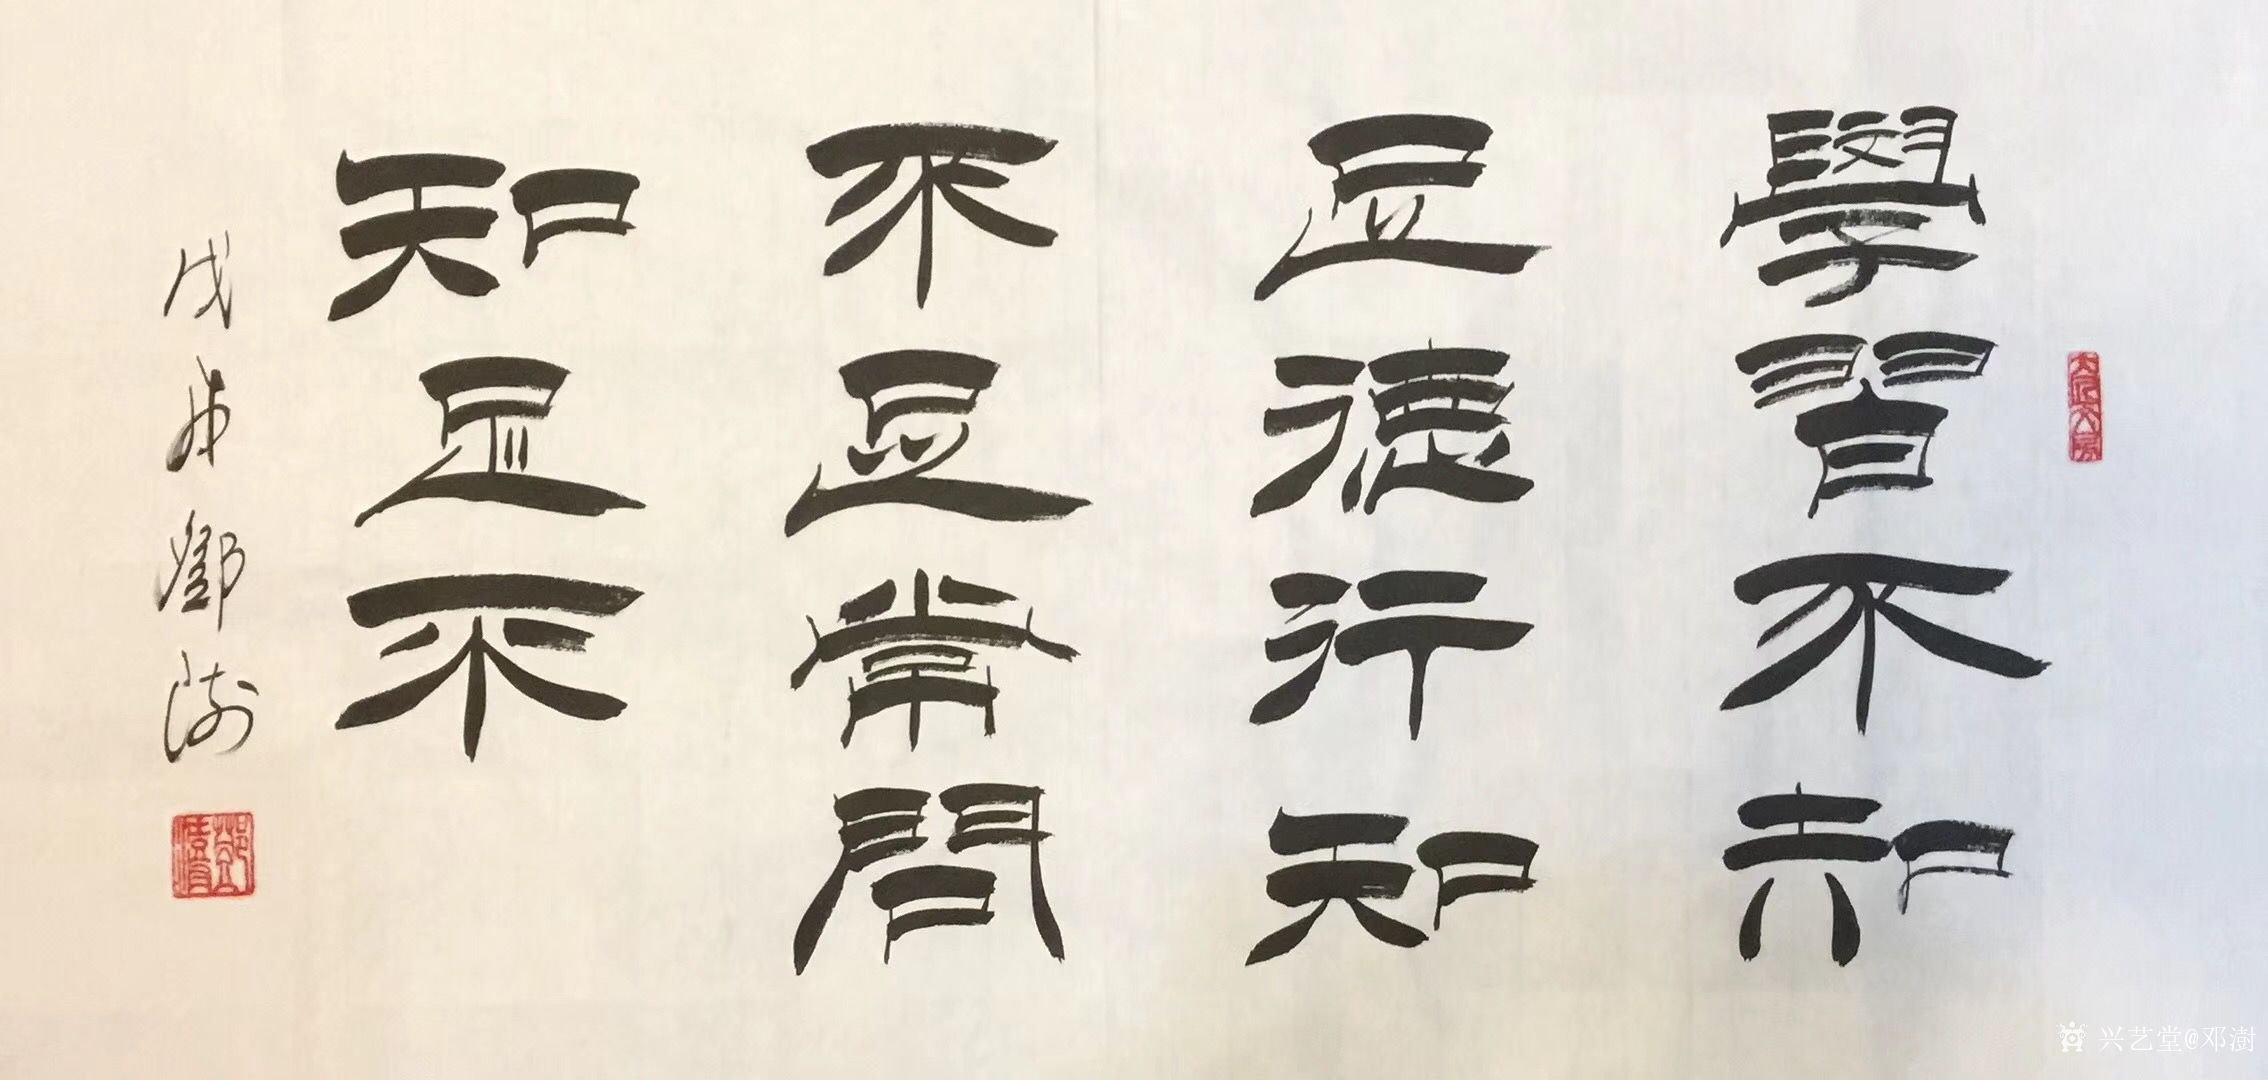 學習不知
足德行知
不足常問
知足不
戊戌鄧澍
兴艺堂@邓澍